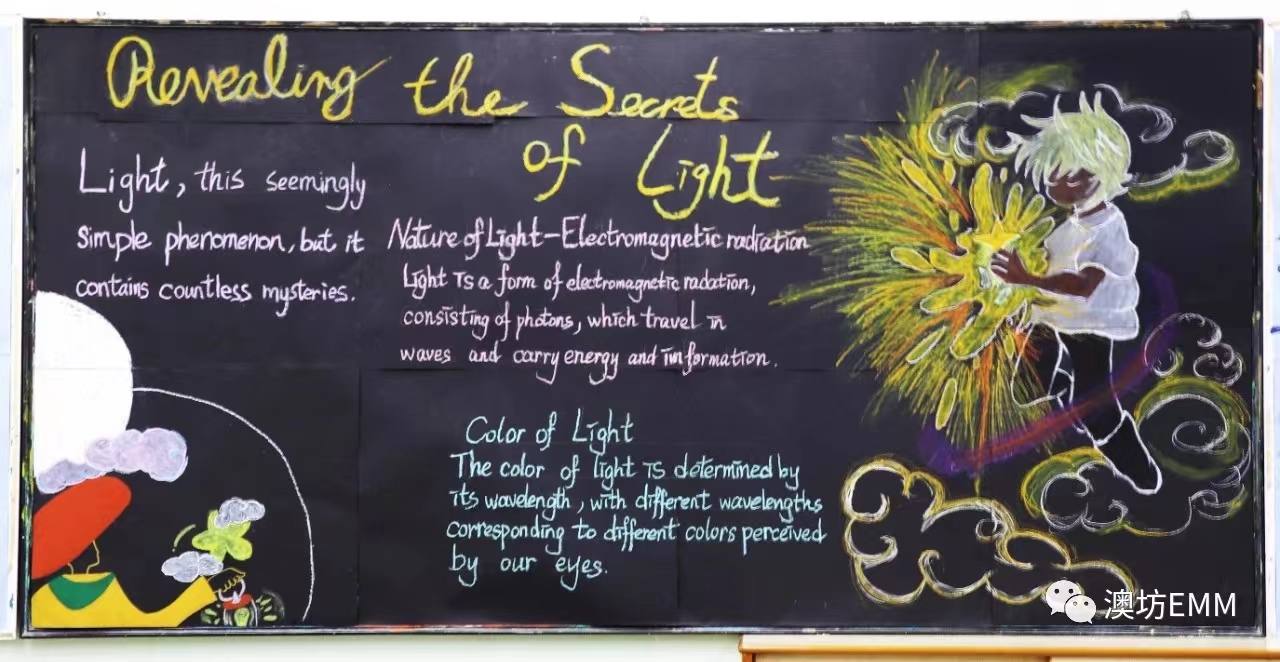 Revealing the Secrets
of Light
Light, this seemingly
simple phenomenon, but it
contains countless mysteries.
Nature of Light-Electromagnetic radiation
Light is a form of electromagnetic radation,
consisting of photons, which travel in
waves and carry energy and information.
Color of Light
The color of light is determined by
its wavelength, with different wavelengths
corresponding to different colors perceived
by our eyes.
澳坊EMM